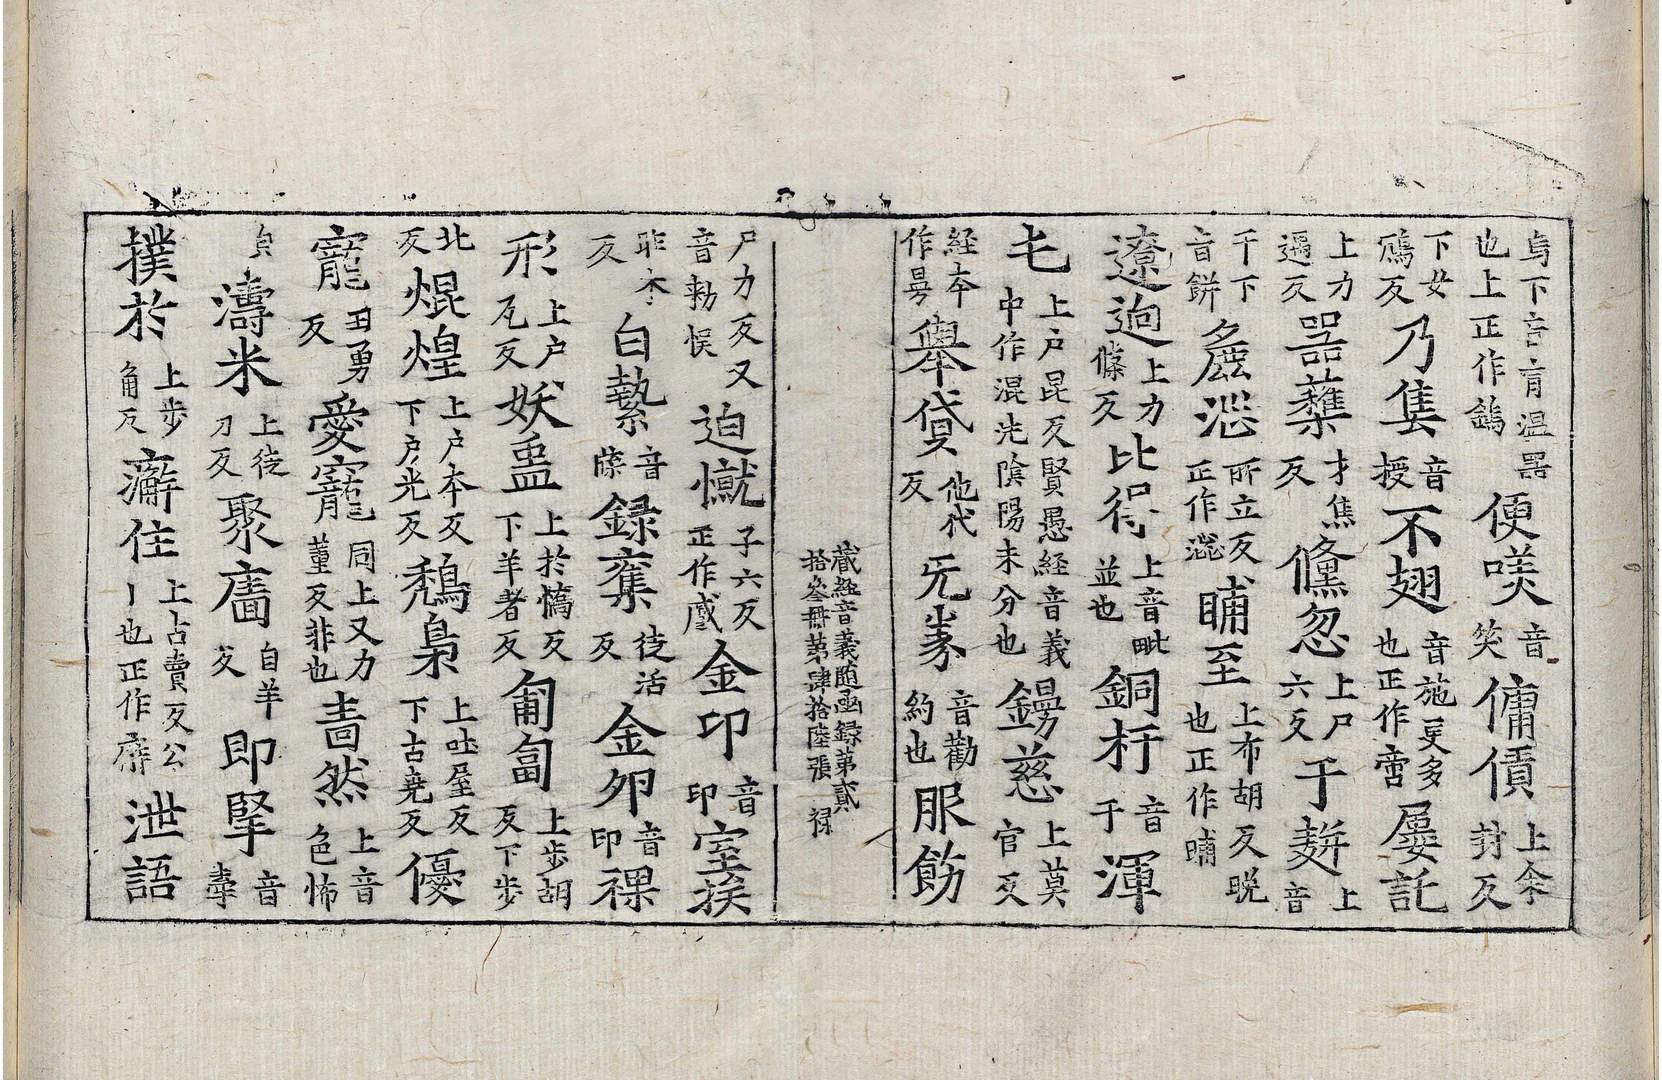 烏下音育温器也上正作鷂便咲音笑傭債上余封反
下女鴈反乃隻音授不翅音施更多也正作啻屢託
上力遥反噐蘸才焦反儵忽上尸六反于麸上音
千下音餅麁澁所立反正作澀晡至上布胡反晚也正作晡
遼逈上力條反比得上音毗並也銅杅音于渾
屯上户昆反賢愚經音義中作混沌陰陽未分也鐋慈上莫官反
経夲作曻舉貸他代反旡豸音勸約也服餝
藏経音義随函録第貳拾叅冊第肆拾陸張 禄
尸力反又音勑悞迫憱子六反正作慼金印音印室挨
昨木反白䋈音牒録奪徒活反金夘音印裸
形上户瓦反妖蛊上於憍反下羊者反匍匐上步胡反下步
北反焜煌上户本反下户光反鵚梟上吐屋反下古尭反優
寵丑勇反愛寵同上又力董反非也畵然上音色怖
負濤米上徒刀反聚廧自羊反即擥音牽
撲於上步角反癖住上占賣反公丨也正作廨泄語